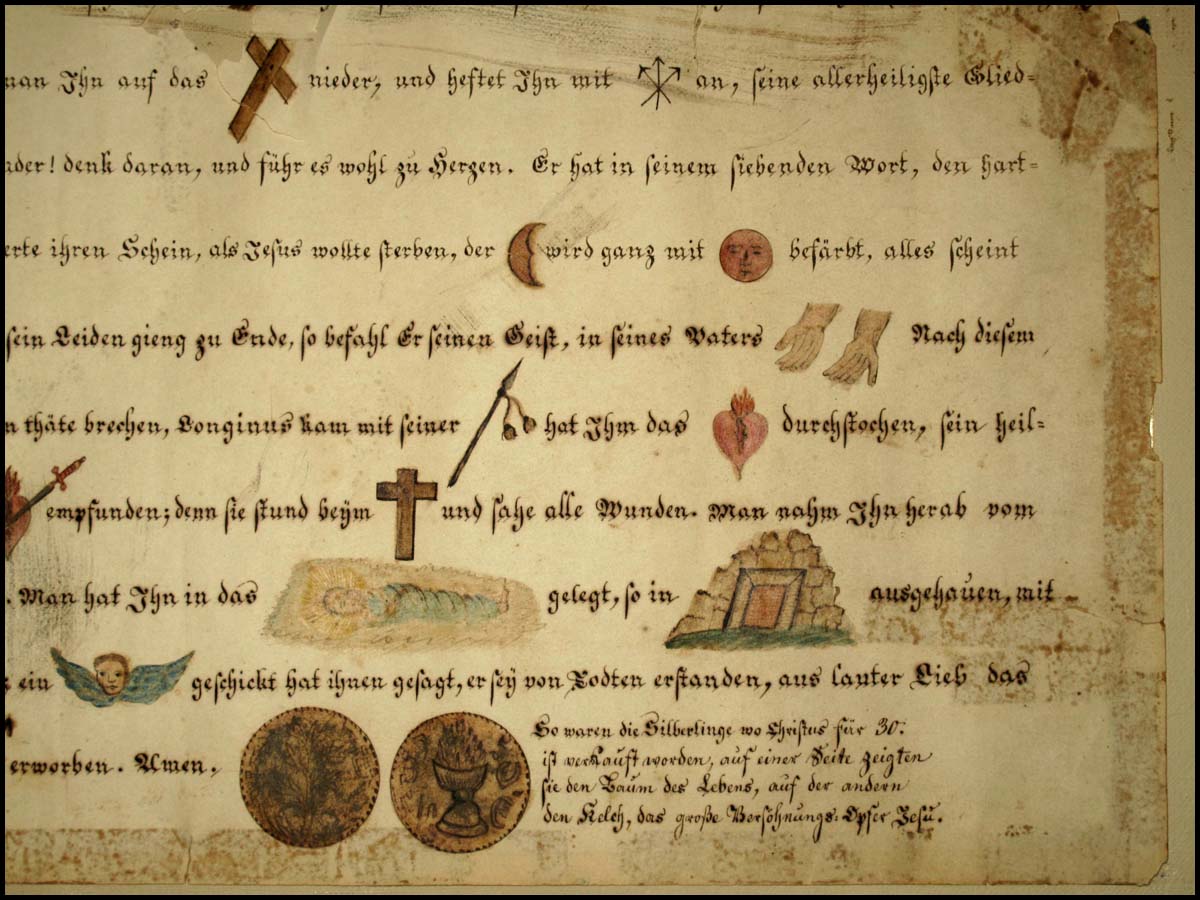 man Ihn auf das nieder, und heftet Ihn mit an, seine allerheiligste Glied=
denk daran, und führ es wohl zu Herzen. Er hat in seinem siebenden Wort, den hart=
ihren Schein, als Jesus wollte sterben, der wird ganz mit befärbt, alles scheint
sein Leiden gieng zu Ende, so befahl Er seinen Geist, in seines Vaters Nach diesem
thäte brechen, Longinus kam mit seiner hat Ihm das durchstochen, sein heil=
empfunden; denn sie stund beÿm und sahe alle Wunden. Man nahm Ihn herab vom
. Man hat Ihn in das gelegt, so in ausgehauen, mit
ein geschickt hat ihnen gesagt, er seÿ von Todten erstanden, aus lauter Lieb das
erworben. Amen.
So waren die Silberlinge wo Christus für 30:
ist verkauft worden, auf einer Seite zeigten
sie den Baum des Lebens, auf der andern
den Kelch, das große Versöhnungs: Opfer Jesu.